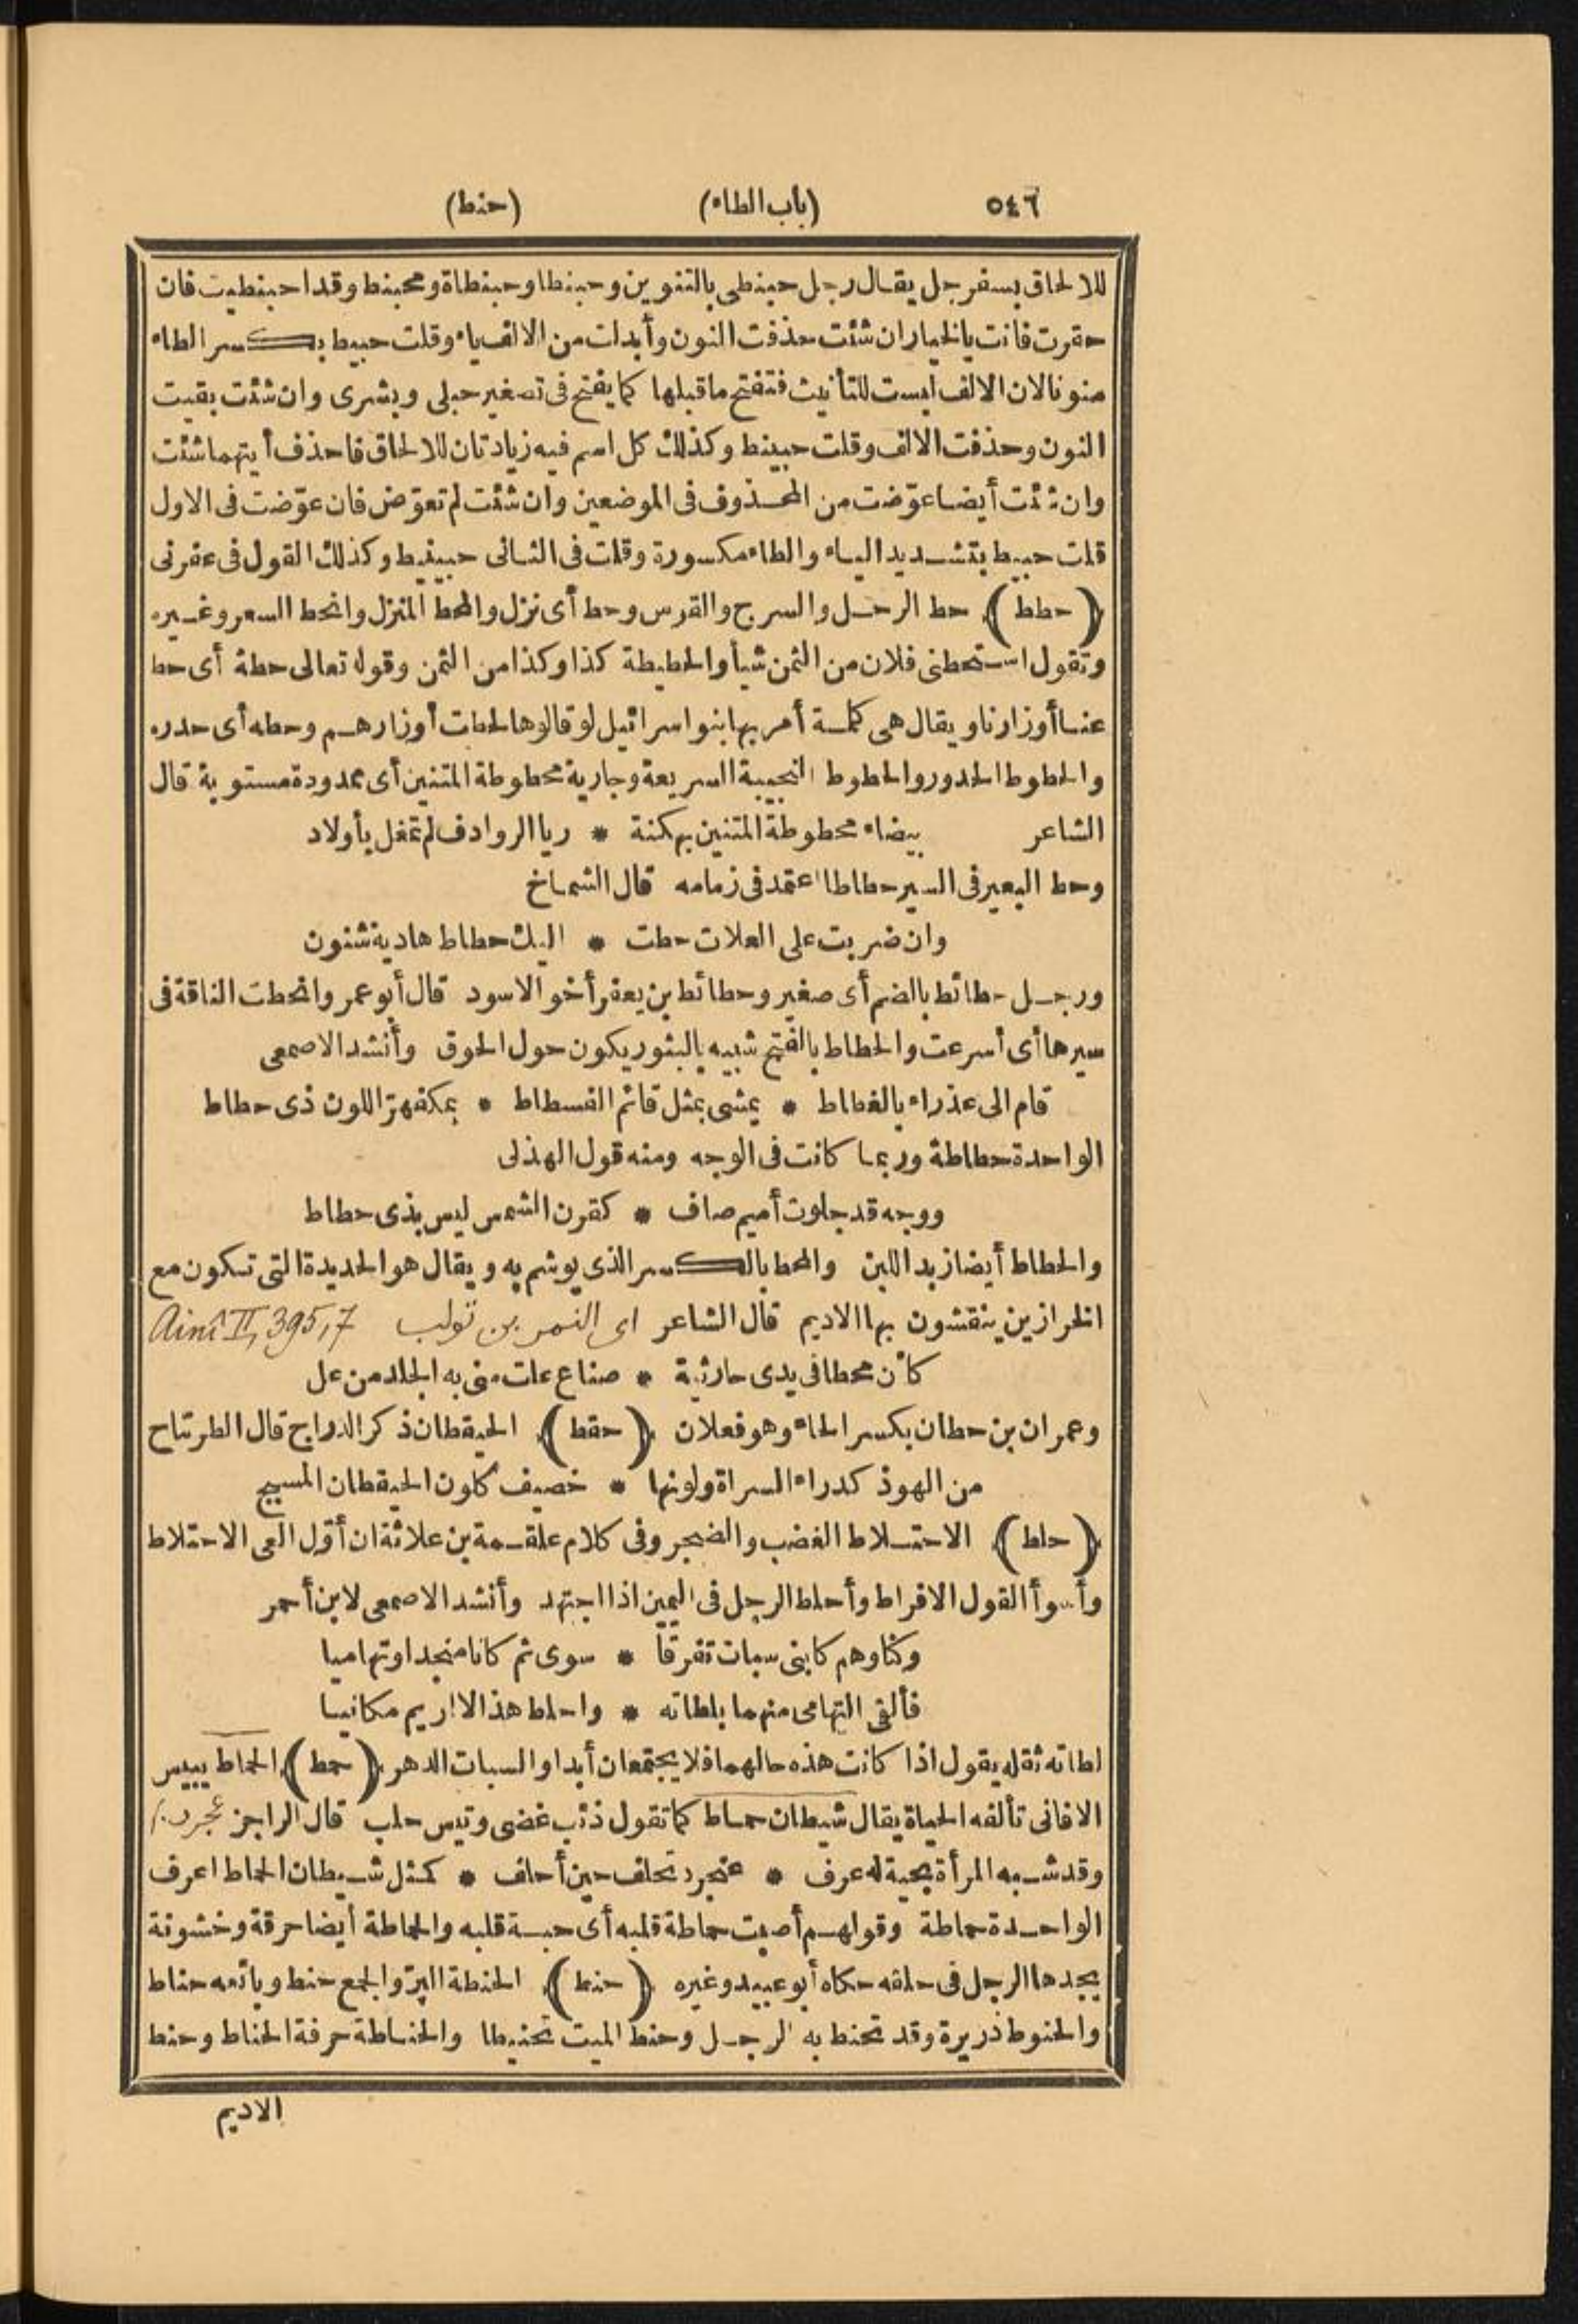 ٥٤٦ (باب الطاء) (حنط)
للالحاق بسفرجل يقال رجل حبنطى بالتنوين وحبنطا وحبنطاة ومحبنط وقد احبنطيت فان
حقرت فانت بالخيار ان شئت حذفت النون وأبدلت من الالف ياء وقلت حبيط بكسر الطاء
منونا لان الالف ليست للتأنيث فتفتح ما قبلها كما يفتح فى تصغير حبلى وبشرى وان شئت بقيت
النون وحذفت الالف وقلت حبينط وكذلك كل اسم فيه زيادتان للالحاق فاحذف أيتهما شئت
وان شئت أيضا عوّضت من المحذوف فى الموضعين وان شئت لم تعوّض فان عوّضت فى الاول
قلت حبيط بتشديد الياء والطاء مكسورة وقلت فى الثانى حبينيط وكذلك القول فى عفرنى
(حطط) حط الرحل والسرج والقوس وحط أى نزل والمحط المنزل وانحط السعر وغيره
وتقول استحطنى فلان من الثمن شيأ والحطيطة كذا وكذا من الثمن وقوله تعالى حطة أى حط
عنا أوزارنا ويقال هى كلمة أمر بها بنو اسرائيل لو قالوها لحطت أوزارهم وحطه أى حدره
والحطوط الحدور والحطوط النجيبة السريعة وجارية محطوطة المتنين أى ممدودة مستوية قال
الشاعر بيضاء محطوطة المتنين بهكنة * ريا الروادف لم تمغل بأولاد
وحط البعير فى السير حطاطا اعتمد فى زمامه قال الشماخ
وان ضربت على العلات حطت * اليك حطاط هادية شنون
ورجل حطائط بالضم أى صغير وحطائط بن يعفر أخو الاسود قال أبو عمرو انحطت الناقة فى
سيرها أى أسرعت والحطاط بالفتح شبيه بالبثور يكون حول الحوق وأنشد الاصمعى
قام الى عذراء بالغطاط * يمشى بمثل قائم الفسطاط * بمكفهرّ اللون ذى حطاط
الواحدة حطاطة وربما كانت فى الوجه ومنه قول الهذلى
ووجه قد جلوت أميم صاف * كقرن الشمس ليس بذى حطاط
والحطاط أيضا زبد اللبن والمحط بالكسر الذى يوشم به ويقال هو الحديدة التى تكون مع
الخرازين ينقشون بها الاديم قال الشاعر اى النمر بن تولب Ainî II, 395,7
كأن محطا فى يدى حارثية * صناع علت منى به الجلد من عل
وعمران بن حطان بكسر الحاء وهو فعلان (حقط) الحيقطان ذكر الدراج قال الطرماح
من الهوذ كدراء السراة ولونها * خصيف كلون الحيقطان المسيح
(حلط) الاحتلاط الغضب والضجر وفى كلام علقمة بن علاثة ان أوّل العى الاحتلاط
وأسوأ القول الافراط وأحلط الرجل فى اليمين اذا اجتهد وأنشد الاصمعى لابن أحمر
وكنا وهم كابنى سبات تفرقا * سوى ثم كانا منجدا وتهاميا
فألقى التهامى منهما بلطاته * واحلط هذا لا اريم مكانيا
لطاته ثقله يقول اذا كانت هذه حالهما فلا يجتمعان أبدا والسبات الدهر (حمط) الحماط يبيس
الافانى تألفه الحياة يقال شيطان حماط كما تقول ذئب غضى وتيس حلب قال الراجز
وقد شبه المرأة بحية له عرف * عنجرد تحلف حين أحلف * كمثل شيطان الحماط اعرف
الواحدة حماطة وقولهم أصبت حماطة قلبه أى حبة قلبه والحماطة أيضا حرقة وخشونة
يجدها الرجل فى حلقه حكاه أبو عبيد وغيره (حنط) الحنطة البرّ والجمع حنط وبائعه حناط
والحنوط ذريرة وقد تحنط به الرجل وحنط الميت تحنيطا والحناطة حرفة الحناط وحنط
الاديم